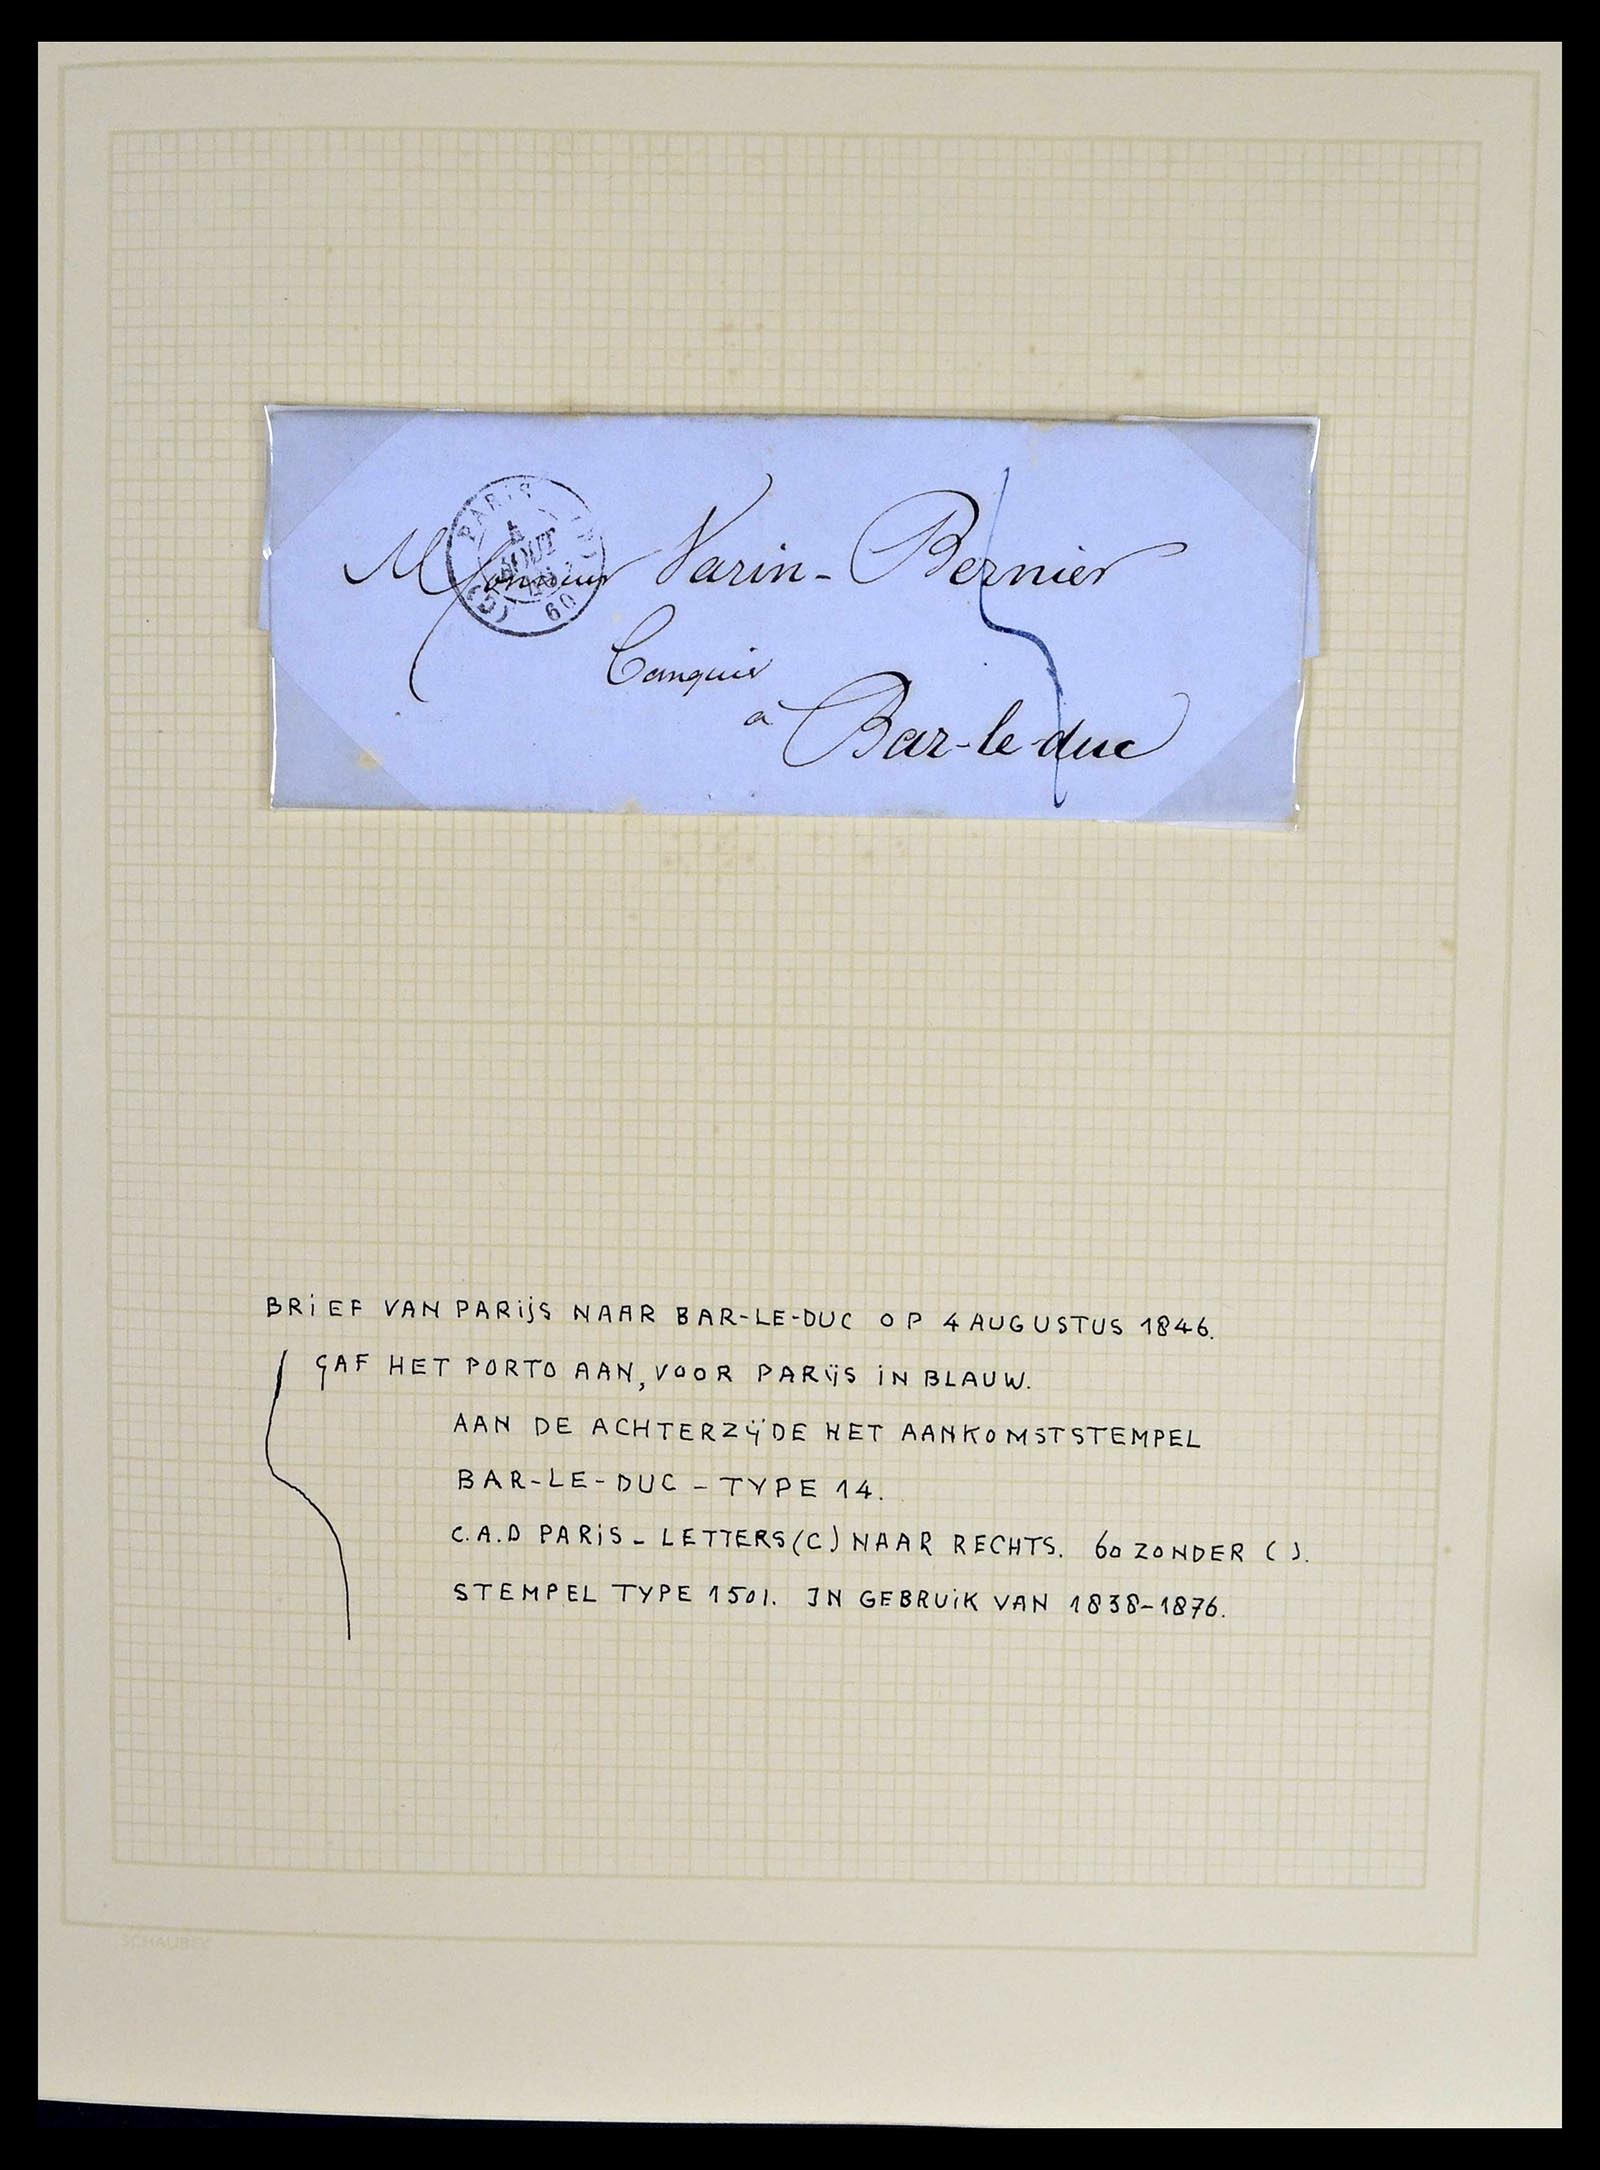 PARIS
4
AOUT
(C)
60
Monsieur Varin-Bernier
banquier
à Bar-le-duc
BRIEF VAN PARIJS NAAR BAR-LE-DUC OP 4 AUGUSTUS 1846.
GAF HET PORTO AAN, VOOR PARIJS IN BLAUW.
AAN DE ACHTERZIJDE HET AANKOMSTSTEMPEL
BAR-LE-DUC - TYPE 14.
C.A.D PARIS - LETTERS (C) NAAR RECHTS. 60 ZONDER ( ).
STEMPEL TYPE 1501. IN GEBRUIK VAN 1838-1876.
SCHAUBEK